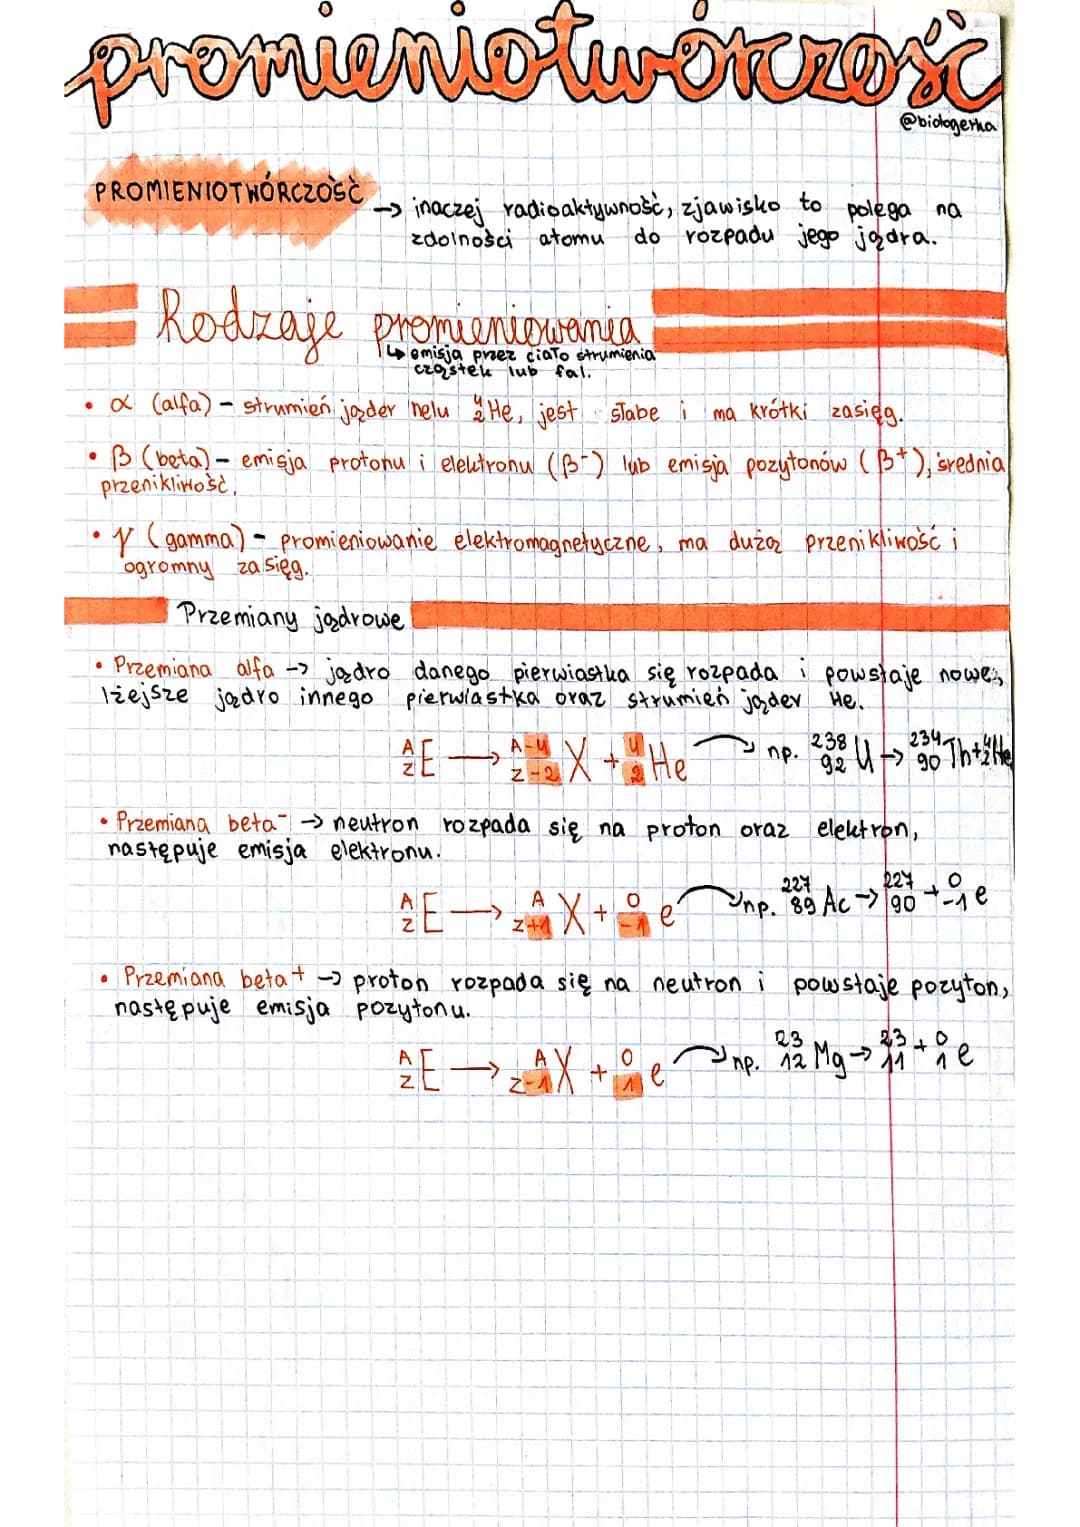 promieniotwórczość
@biologerka
PROMIENIOTWÓRCZOŚĆ → inaczej radioaktywność, zjawisko to polega na
zdolności atomu do rozpadu jego jądra.
Rodzaje promieniowania
↳ emisja przez ciało strumienia
cząstek lub fal.
• α (alfa) – strumień jąder helu ⁴₂He, jest słabe i ma krótki zasięg.
• β (beta) – emisja protonu i elektronu (β⁻) lub emisja pozytonów (β⁺), średnia
przenikliwość.
• γ (gamma) – promieniowanie elektromagnetyczne, ma dużą przenikliwość i
ogromny zasięg.
Przemiany jądrowe
• Przemiana alfa → jądro danego pierwiastka się rozpada i powstaje nowe,
lżejsze jądro innego pierwiastka oraz strumień jąder He.
ᴬ_Z E → ᴬ⁻⁴_Z₋₂ X + ⁴₂He np. ²³⁸₉₂U → ²³⁴₉₀Th + ⁴₂He
• Przemiana beta⁻ → neutron rozpada się na proton oraz elektron,
następuje emisja elektronu.
ᴬ_Z E → ᴬ_Z₊₁ X + ⁰₋₁e np. ²²⁷₈₉Ac → ²²⁷₉₀ + ⁰₋₁e
• Przemiana beta⁺ → proton rozpada się na neutron i powstaje pozyton,
następuje emisja pozytonu.
ᴬ_Z E → ᴬ_Z₋₁ X + ⁰₁e np. ²³₁₂Mg → ²³₁₁ + ⁰₁e